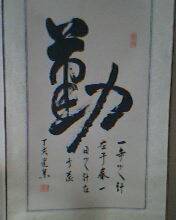 勤
一年之计
在于春一
日之计在
于
丁亥